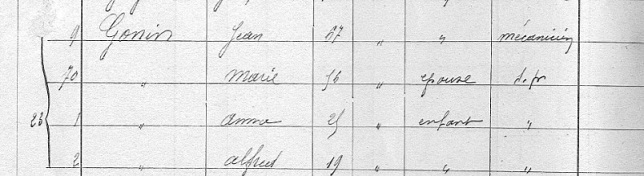 9 Gonin Jean 57 " " mécanicien
70 " Marie 56 " épouse s.pr
28 1 " Anna 25 " enfant "
2 " Alfred 19 " " "